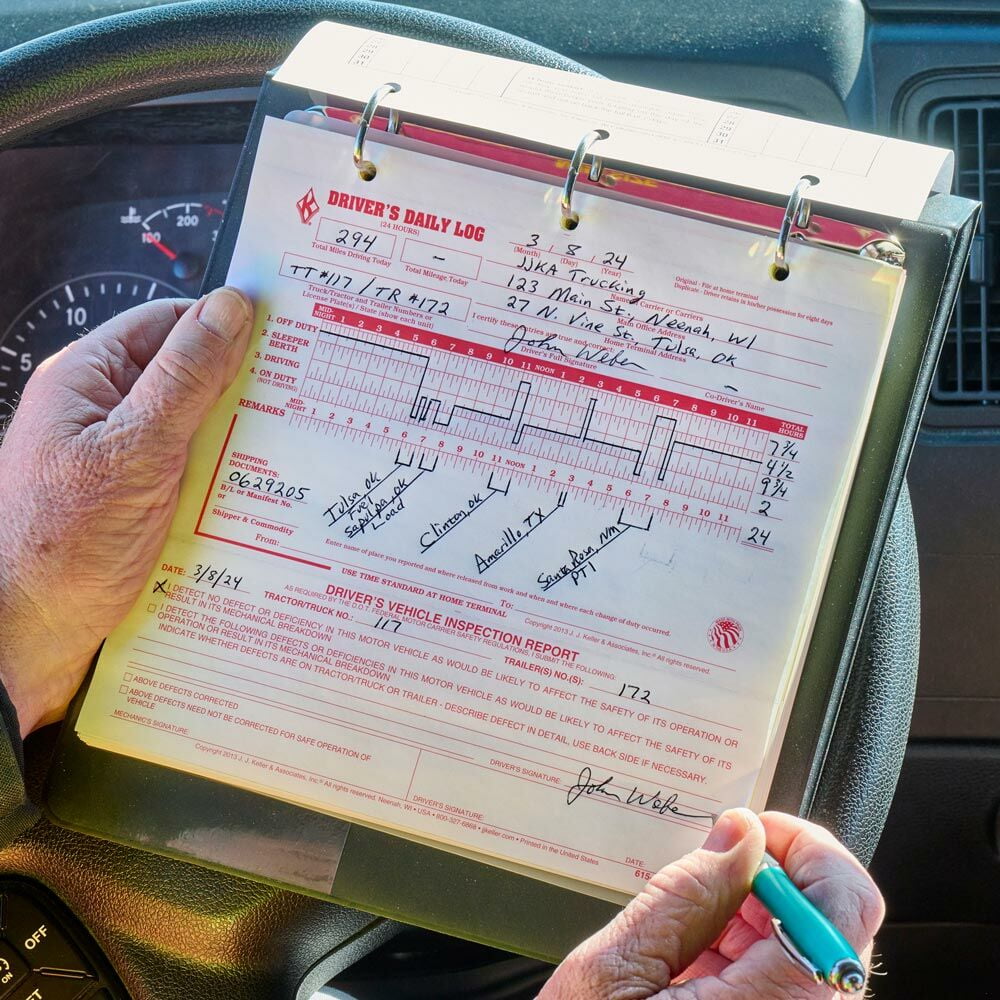 DRIVER'S DAILY LOG
(24 HOURS)
3 / 8 / 24
(Month) (Day) (Year)
Original - File at home terminal
Duplicate - Driver retains in his/her possession for eight days
294
Total Miles Driving Today
-
Total Mileage Today
JJKA Trucking
Name of Carrier or Carriers
123 Main St., Neenah, WI
Main Office Address
TT #117 / TR #172
Truck/Tractor and Trailer Numbers or
License Plate(s) / State (show each unit)
27 N. Vine St, Tulsa, OK
Home Terminal Address
I certify these entries are true and correct:
John Weber
Driver's Full Signature
-
Co-Driver's Name
MID-NIGHT 1 2 3 4 5 6 7 8 9 10 11 NOON 1 2 3 4 5 6 7 8 9 10 11 TOTAL HOURS
1. OFF DUTY 7 3/4
2. SLEEPER BERTH 4 1/2
3. DRIVING 9 3/4
4. ON DUTY (NOT DRIVING) 2
MID-NIGHT 1 2 3 4 5 6 7 8 9 10 11 NOON 1 2 3 4 5 6 7 8 9 10 11
24
REMARKS
Tulsa, OK
Fuel
Sapulpa, OK
Load
Clinton, OK
Amarillo, TX
Santa Rosa, NM
PTI
SHIPPING
DOCUMENTS:
0629205
B/L or Manifest No.
or
Shipper & Commodity
From:
Enter name of place you reported and where released from work and when and where each change of duty occurred.
USE TIME STANDARD AT HOME TERMINAL
To:
Copyright 2013 J. J. Keller & Associates, Inc.® All rights reserved.
DATE: 3/8/24
DRIVER'S VEHICLE INSPECTION REPORT
AS REQUIRED BY THE D.O.T. FEDERAL MOTOR CARRIER SAFETY REGULATIONS, I SUBMIT THE FOLLOWING:
TRACTOR/TRUCK NO.: 117
TRAILER(S) NO.(S): 172
X I DETECT NO DEFECT OR DEFICIENCY IN THIS MOTOR VEHICLE AS WOULD BE LIKELY TO AFFECT THE SAFETY OF ITS OPERATION OR
RESULT IN ITS MECHANICAL BREAKDOWN
I DETECT THE FOLLOWING DEFECTS OR DEFICIENCIES IN THIS MOTOR VEHICLE AS WOULD BE LIKELY TO AFFECT THE SAFETY OF ITS
OPERATION OR RESULT IN ITS MECHANICAL BREAKDOWN
INDICATE WHETHER DEFECTS ARE ON TRACTOR/TRUCK OR TRAILER - DESCRIBE DEFECT IN DETAIL, USE BACK SIDE IF NECESSARY.
ABOVE DEFECTS CORRECTED
ABOVE DEFECTS NEED NOT BE CORRECTED FOR SAFE OPERATION OF
VEHICLE
MECHANIC'S SIGNATURE:
DRIVER'S SIGNATURE: John Weber
DRIVER'S SIGNATURE:
DATE:
Copyright 2013 J. J. Keller & Associates, Inc.® All rights reserved. Neenah, WI • USA • 800-327-6868 • jjkeller.com • Printed in the United States
615-
200
100
10
5
OFF
ON